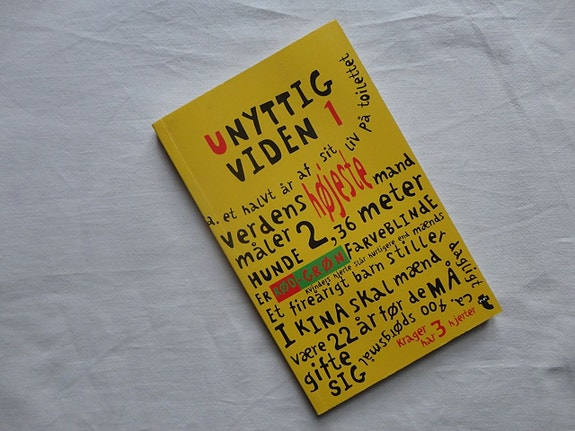 UNYTTIG
VIDEN 1
a. et halvt år af sit liv på toilettet
verdens højeste mand
måler 2,36 meter
HUNDE
ER RØD-GRØN FARVEBLINDE
kvinders hjerte slår hurtigere end mænds
Et fireårigt barn stiller
ca. 900 spørgsmål dagligt
I KINA skal mænd
være 22 år før de MÅ
gifte
SIG
Krager
har 3 hjerter